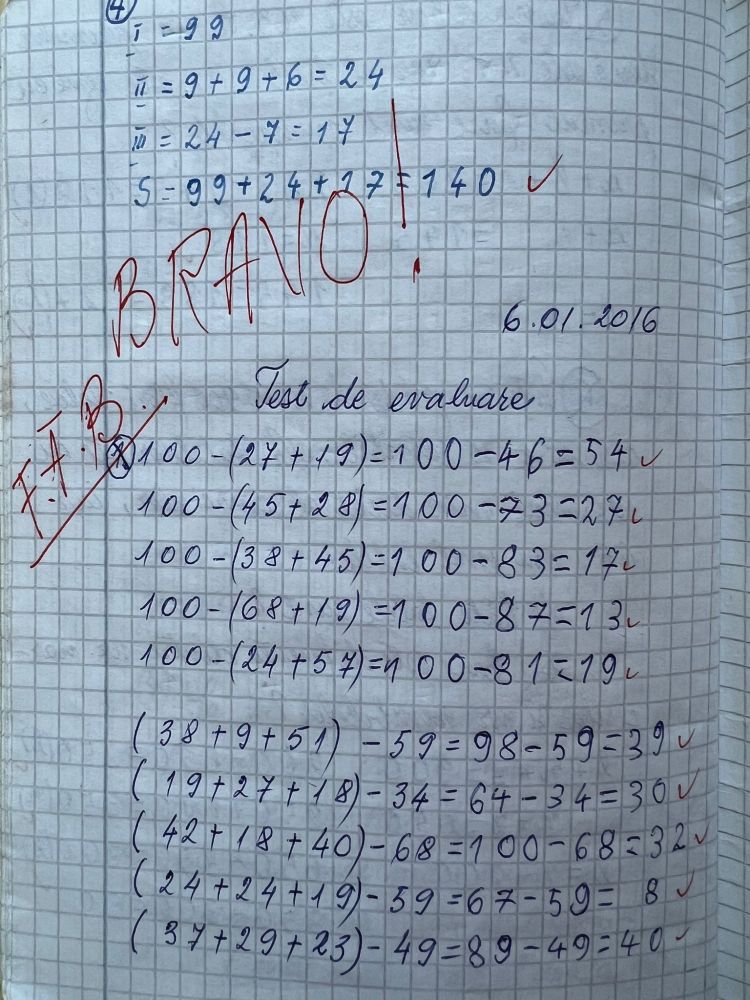 4
I = 99
II = 9 + 9 + 6 = 24
III = 24 - 7 = 17
S = 99 + 24 + 17 = 140 ✓
BRAVO!
6.01.2016
Test de evaluare
F.A.B.
1. 100 - (27 + 19) = 100 - 46 = 54 ✓
100 - (45 + 28) = 100 - 73 = 27 ✓
100 - (38 + 45) = 100 - 83 = 17 ✓
100 - (68 + 19) = 100 - 87 = 13 ✓
100 - (24 + 57) = 100 - 81 = 19 ✓
(38 + 9 + 51) - 59 = 98 - 59 = 39 ✓
(19 + 27 + 18) - 34 = 64 - 34 = 30 ✓
(42 + 18 + 40) - 68 = 100 - 68 = 32 ✓
(24 + 24 + 19) - 59 = 67 - 59 = 8 ✓
(37 + 29 + 23) - 49 = 89 - 49 = 40 ✓